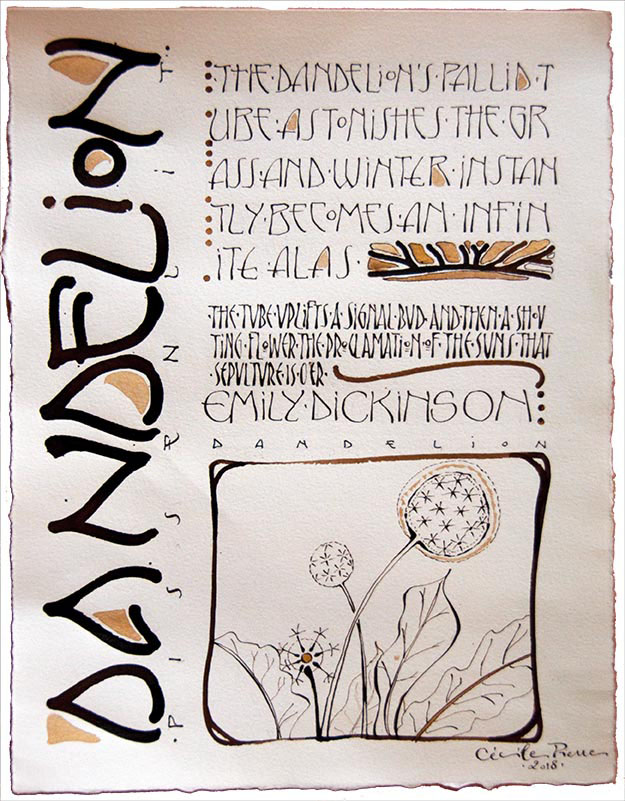 DANDELiON
PISSENLIT
·THE·DANDELiON'S·PALLID·T
UBE·ASTONISHES·THE·GR
ASS·AND·WINTER·INSTAN
TLY·BECOMES·AN·INFIN
ITE·ALAS·
THE·TUBE·UPLIFTS·A·SIGNAL·BUD·AND·THEN·A·SHOU
TING·FLOWER·THE·PROCLAMATION·OF·THE·SUNS·THAT
·SEPULTURE·IS·O'ER·
EMILY·DICKINSON
DANDELiON
Cécile Pierre
·2018·